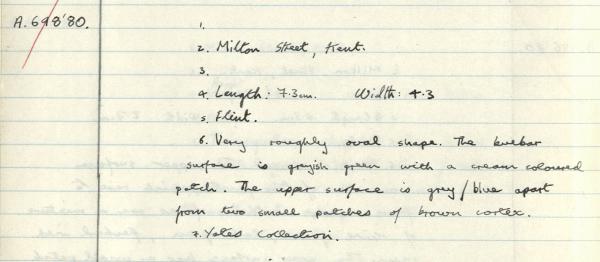 A.698'80.
1.
2. Milton Street, Kent.
3.
4. Length: 7.3cm. Width: 4.3
5. Flint.
6. Very roughly oval shape. The bulbar
surface is greyish green with a cream coloured
patch. The upper surface is grey/blue apart
from two small patches of brown cortex.
7. Yates Collection.